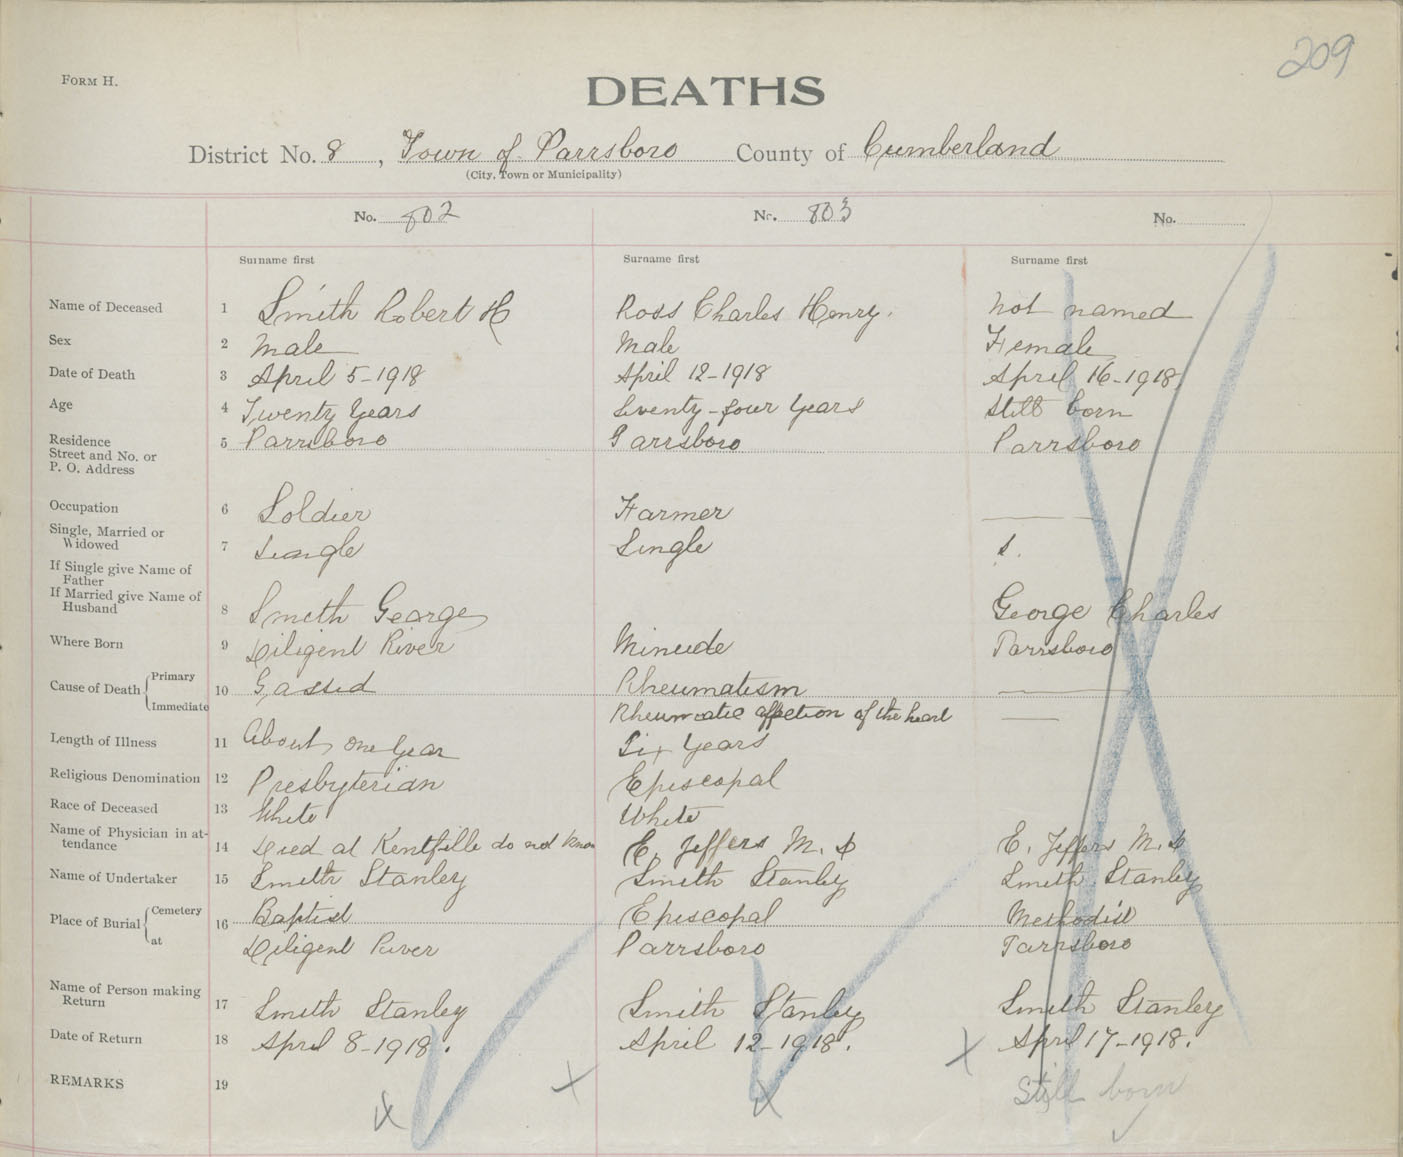 209
FORM H.
DEATHS
District No. 8, Town of Parrsboro County of Cumberland
(City, Town or Municipality)
No. 802 No. 803 No.
Surname first Surname first Surname first
Name of Deceased 1 Smith Robert H Ross Charles Henry. not named
Sex 2 Male Male Female
Date of Death 3 April 5-1918 April 12-1918 April 16-1918
Age 4 Twenty Years Seventy-four Years Still born
Residence 5 Parrsboro Parrsboro Parrsboro
Street and No. or
P. O. Address
Occupation 6 Soldier Farmer
Single, Married or
Widowed 7 Single Single S.
If Single give Name of
Father
If Married give Name of
Husband 8 Smith George George Charles
Where Born 9 Diligent River Minude Parrsboro
Cause of Death Primary 10 Gassed Rheumatism
Immediate Rheumatic affection of the heart
Length of Illness 11 About one Year Six Years
Religious Denomination 12 Presbyterian Episcopal
Race of Deceased 13 White White
Name of Physician in at-
tendance 14 Died at Kentfille do not know E. Jeffers M. D E. Jeffers M. D
Name of Undertaker 15 Smith Stanley Smith Stanley Smith Stanley
Place of Burial Cemetery 16 Baptist Episcopal Methodist
at Diligent River Parrsboro Parrsboro
Name of Person making
Return 17 Smith Stanley Smith Stanley Smith Stanley
Date of Return 18 April 8-1918. April 12-1918. X April 17-1918.
REMARKS 19 X X X Still born